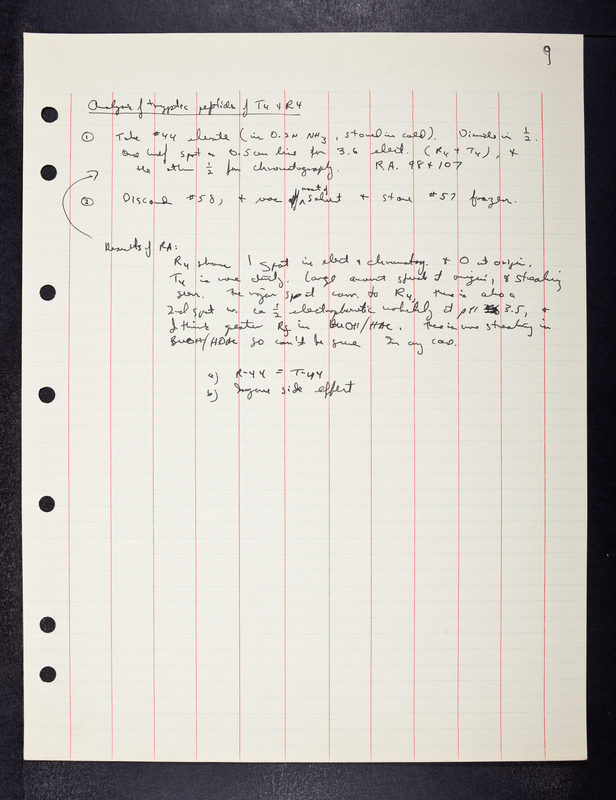 9
Analysis of tryptic peptides of T4 & R4
① Take #44 eluate (in 0.2N NH3, stored in cold). Divide in ½.
One half spot on 0.5 cm line for 3.6 elect. (R4 + T4), &
the other ½ for chromatography. RA. 98 & 107
② Discard #58, & vac off most of solvent & store #57 frozen.
Results of RA:
R4 shows 1 spot in elect & chromatog. & 0 at origin.
T4 is more dirty. Large amount stuck at origin, & streaking
seen. The major spot corr. to R4, there is also a
2nd spot w. ca ½ electrophoretic mobility at pH 3.5, &
I think greater Rf in BuOH/HOAc. There was streaking in
BuOH/HOAc so can't be sure. In any case.
a) R-44 = T-44
b) side effect